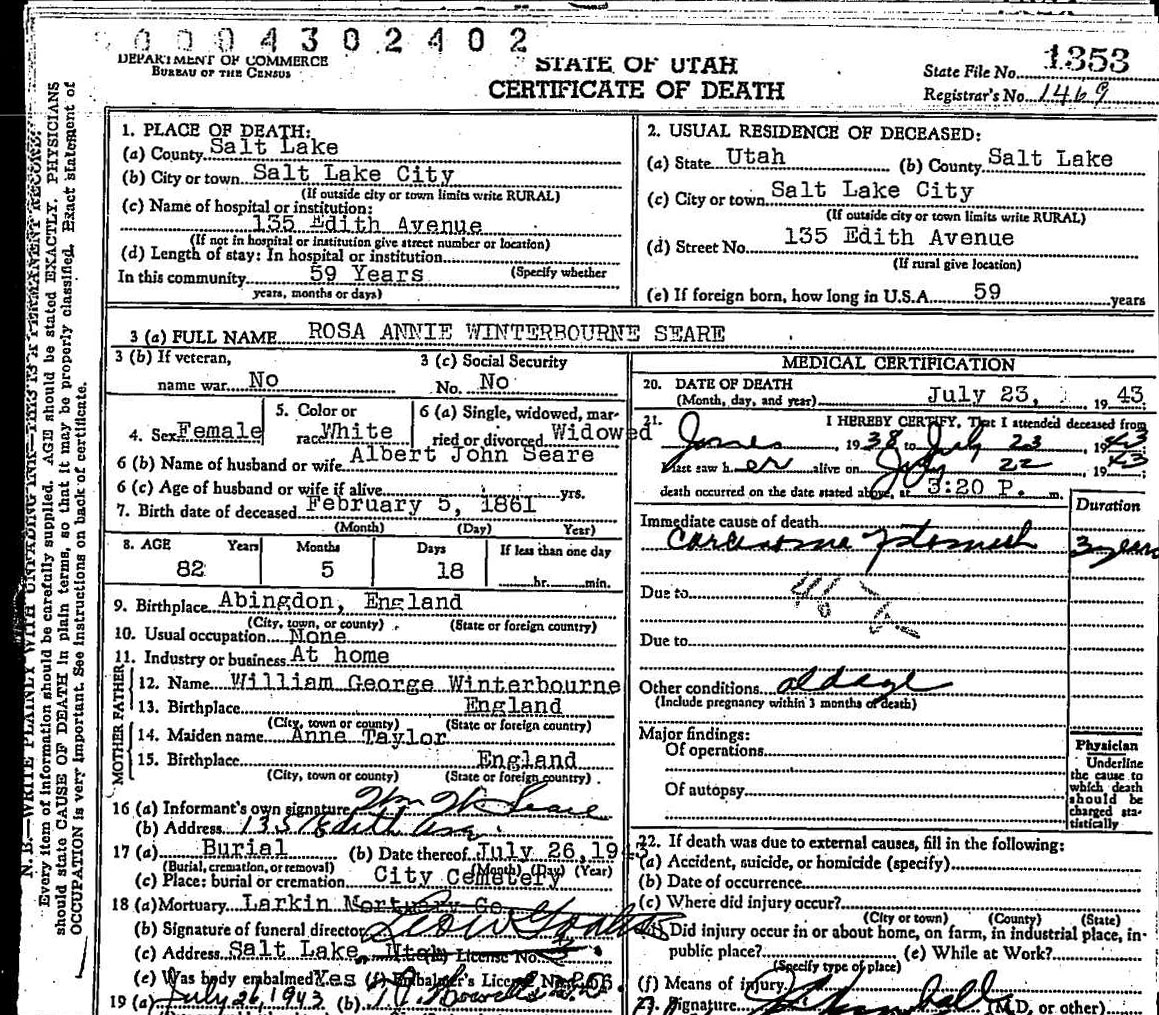 0 0 0 4 3 0 2 4 0 2
DEPARTMENT OF COMMERCE
BUREAU OF THE CENSUS
STATE OF UTAH
CERTIFICATE OF DEATH
State File No. 1353
Registrar's No. 1469
N. B.—WRITE PLAINLY WITH UNFADING INK—THIS IS A PERMANENT RECORD.
Every item of information should be carefully supplied. AGE should be stated EXACTLY. PHYSICIANS
should state CAUSE OF DEATH in plain terms, so that it may be properly classified. Exact statement of
OCCUPATION is very important. See instructions on back of certificate.
1. PLACE OF DEATH:
(a) County Salt Lake
(b) City or town Salt Lake City
(If outside city or town limits write RURAL)
(c) Name of hospital or institution:
135 Edith Avenue
(If not in hospital or institution give street number or location)
(d) Length of stay: In hospital or institution
In this community 59 Years (Specify whether
years, months or days)
2. USUAL RESIDENCE OF DECEASED:
(a) State Utah (b) County Salt Lake
(c) City or town Salt Lake City
(If outside city or town limits write RURAL)
(d) Street No. 135 Edith Avenue
(If rural give location)
(e) If foreign born, how long in U.S.A. 59 years
3 (a) FULL NAME ROSA ANNIE WINTERBOURNE SEARE
3 (b) If veteran,
name war No
3 (c) Social Security
No. No
4. Sex Female
5. Color or
race White
6 (a) Single, widowed, mar-
ried or divorced Widowed
6 (b) Name of husband or wife Albert John Seare
6 (c) Age of husband or wife if alive yrs.
7. Birth date of deceased February 5, 1861
(Month) (Day) Year)
8. AGE Years Months Days If less than one day
82 5 18 hr. min.
9. Birthplace Abingdon, England
(City, town, or county) (State or foreign country)
10. Usual occupation None
11. Industry or business At home
FATHER
12. Name William George Winterbourne
13. Birthplace England
(City, town or county) (State or foreign country)
MOTHER
14. Maiden name Anne Taylor
15. Birthplace England
(City, town or county) (State or foreign country)
16 (a) Informant's own signature Wm W Seare
(b) Address 135 Edith Ave
17 (a) Burial (b) Date thereof July 26, 1943
(Burial, cremation, or removal) (Month) (Day) (Year)
(c) Place: burial or cremation City Cemetery
18 (a) Mortuary Larkin Mortuary Co.
(b) Signature of funeral director
(c) Address Salt Lake, Utah License No.
(e) Was body embalmed Yes (f) Embalmer's License No.
19 (a) July 26, 1943 (b)
MEDICAL CERTIFICATION
20. DATE OF DEATH
(Month, day, and year) July 23, 19 43
21. I HEREBY CERTIFY, That I attended deceased from
19 38 to July 23, 19 43
I last saw h er alive on July 22, 19 43
death occurred on the date stated above, at 3:20 P. m.
Duration
Immediate cause of death
Carcinoma of stomach 3 years
Due to
46
Due to
Other conditions old age
(Include pregnancy within 3 months of death)
Major findings:
Of operations
Of autopsy
Physician
Underline
the cause to
which death
should be
charged sta-
tistically
22. If death was due to external causes, fill in the following:
(a) Accident, suicide, or homicide (specify)
(b) Date of occurrence
(c) Where did injury occur?
(City or town) (County) (State)
Did injury occur in or about home, on farm, in industrial place, in-
public place? (e) While at Work?
(Specify type of place)
(f) Means of injury
23. Signature (M.D. or other)